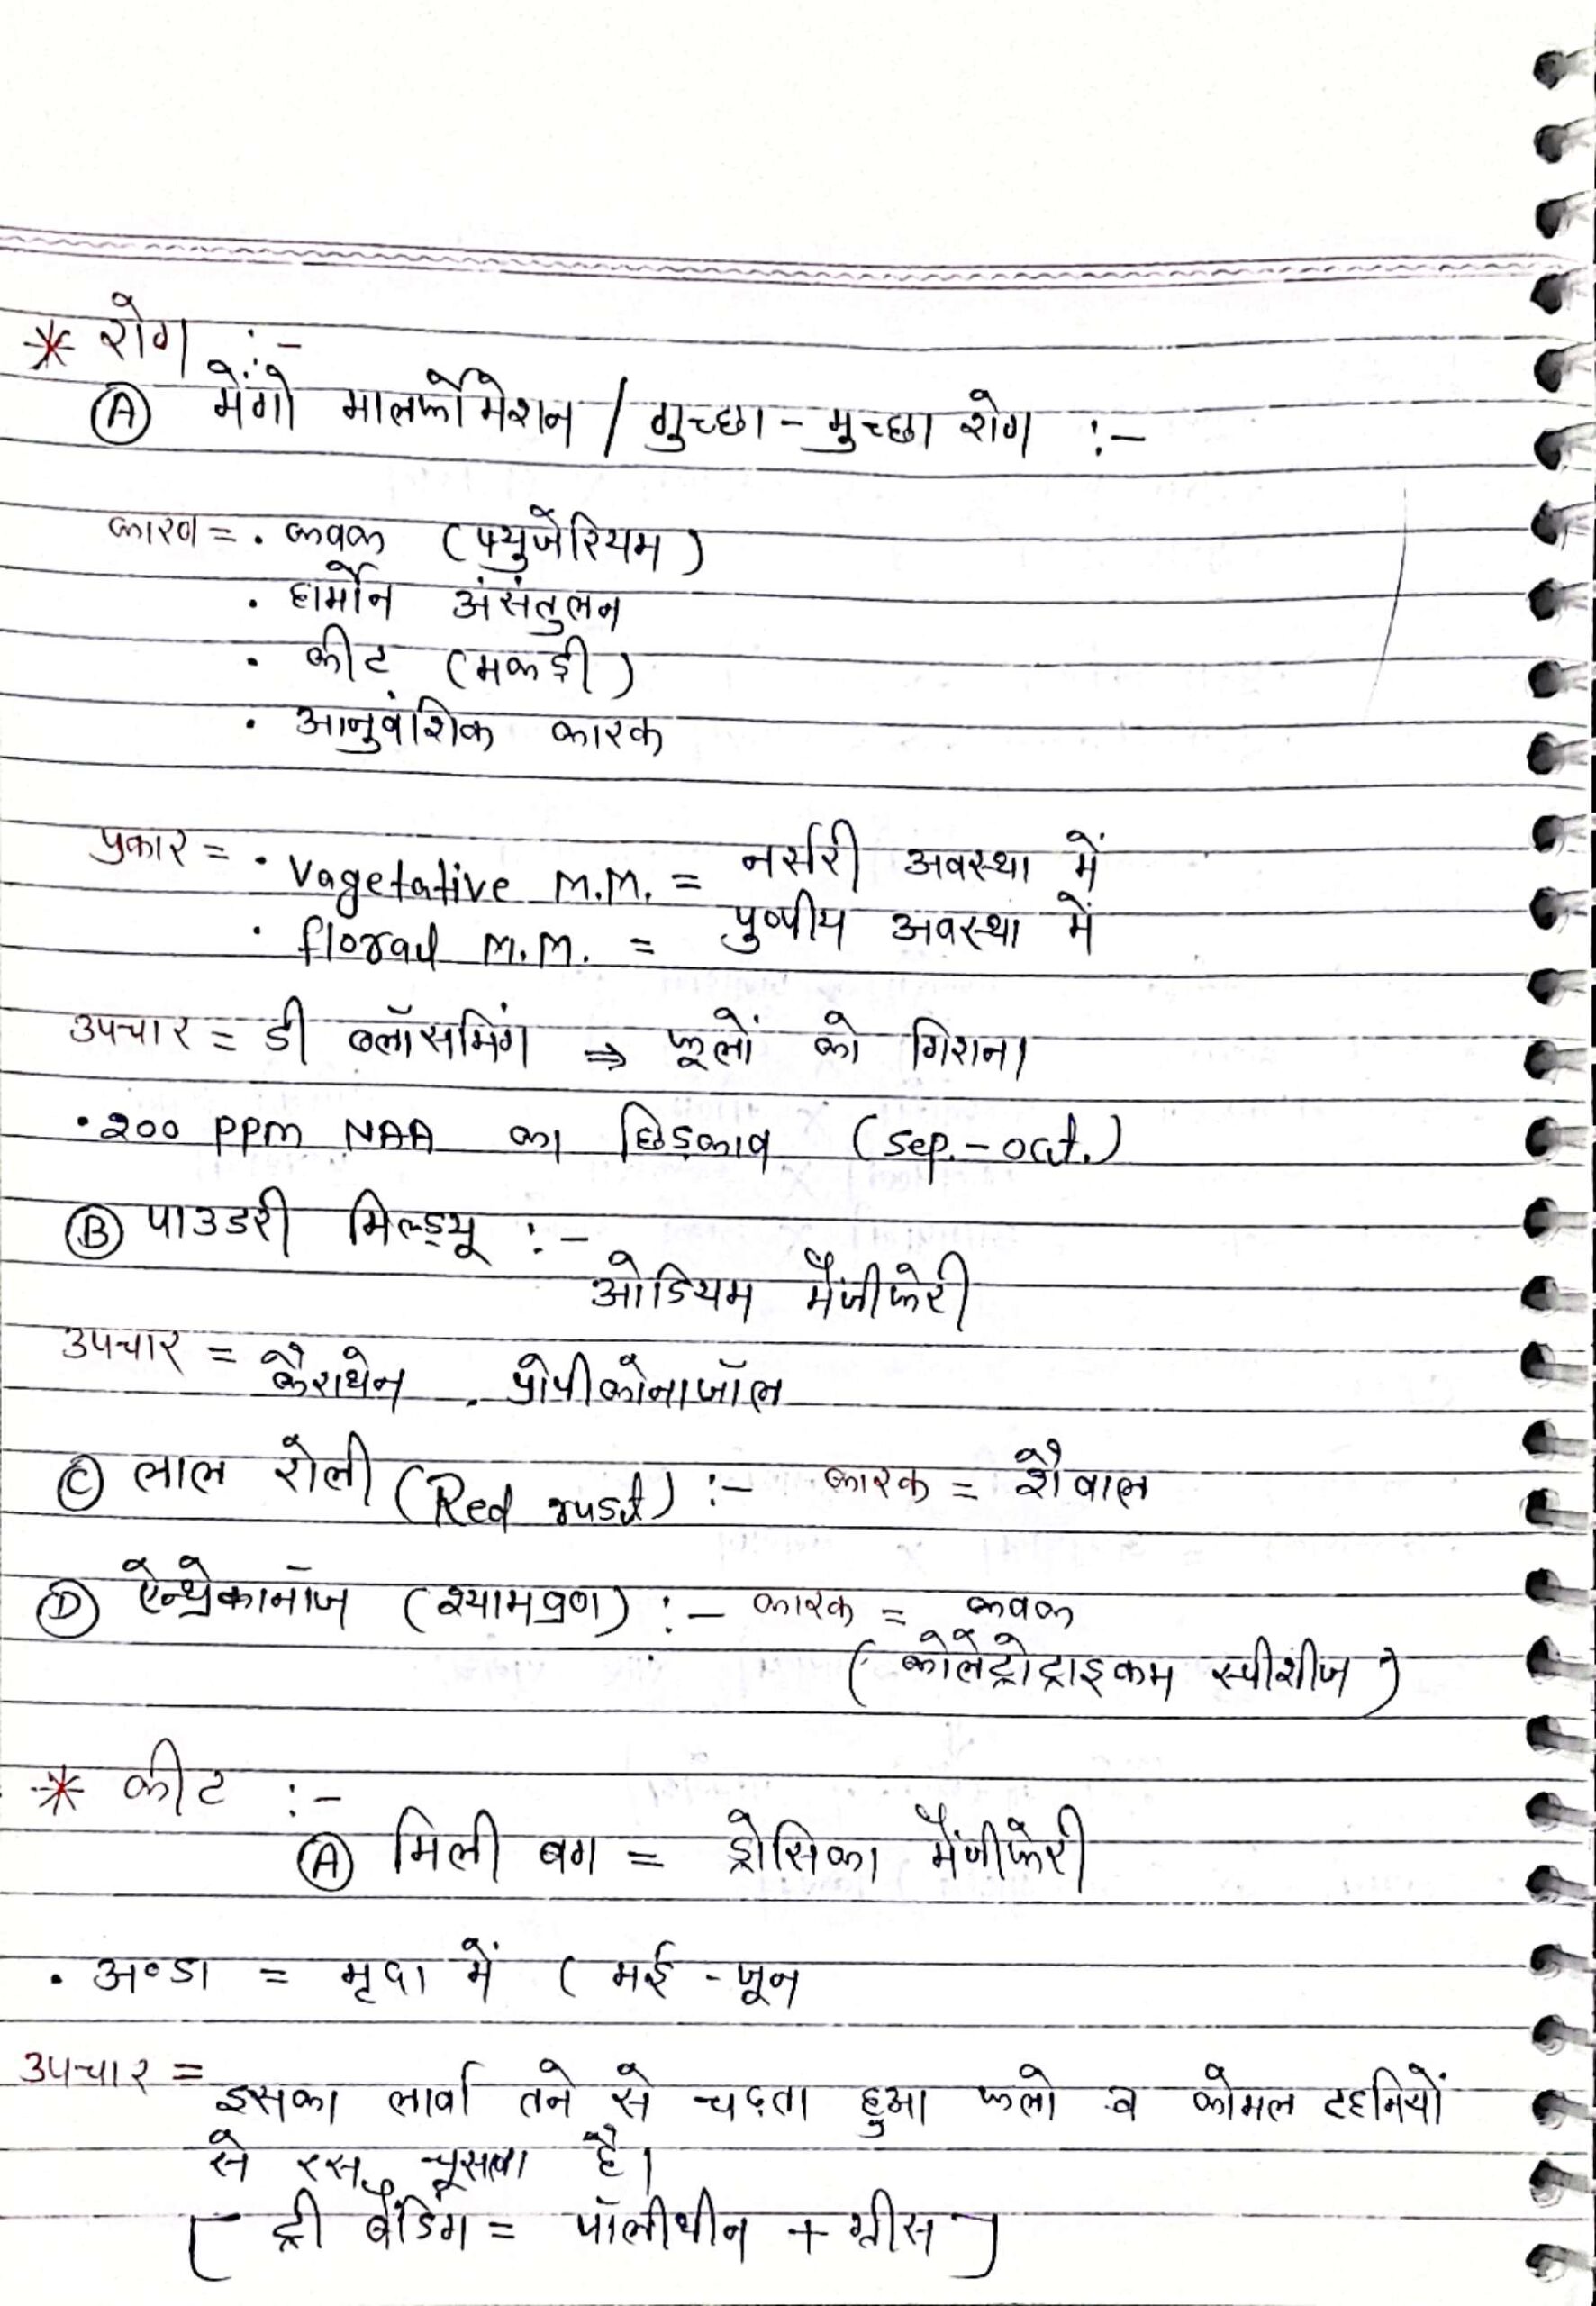 * रोग :-
Ⓐ मेंगो मालफॉर्मेशन / गुच्छा-मुच्छा रोग :-
कारण = • कवक (फ्युजेरियम)
• हार्मोन अंसंतुलन
• कीट (मकड़ी)
• आनुवंशिक कारक
प्रकार = • vagetative m.m. = नर्सरी अवस्था में
• floral m.m. = पुष्पीय अवस्था में
उपचार = डी ब्लॉसमिंग ⇒ फूलों को गिराना
• 200 PPM NAA का छिड़काव (sep.-oct.)
Ⓑ पाउडरी मिल्ड्यू :-
ओडियम मैंजीफेरी
उपचार = कैराथेन, प्रोपीकोनाजॉल
Ⓒ लाल रोली (Red rust) :- कारक = शैवाल
Ⓓ ऐन्थ्रेकानॉज (श्यामव्रण) :- कारक = कवक
(कोलेट्रोट्राइकम स्पीशीज)
* कीट :-
Ⓐ मिली बग = ड्रोसिका मैंजीफेरी
• अण्डा = मृदा में (मई - जून
उपचार = इसका लार्वा तने से चढ़ता हुआ फलो व कोमल टहनियों
से रस चूसता है।
[ ट्री बैंडिंग = पॉलीथीन + ग्रीस ]